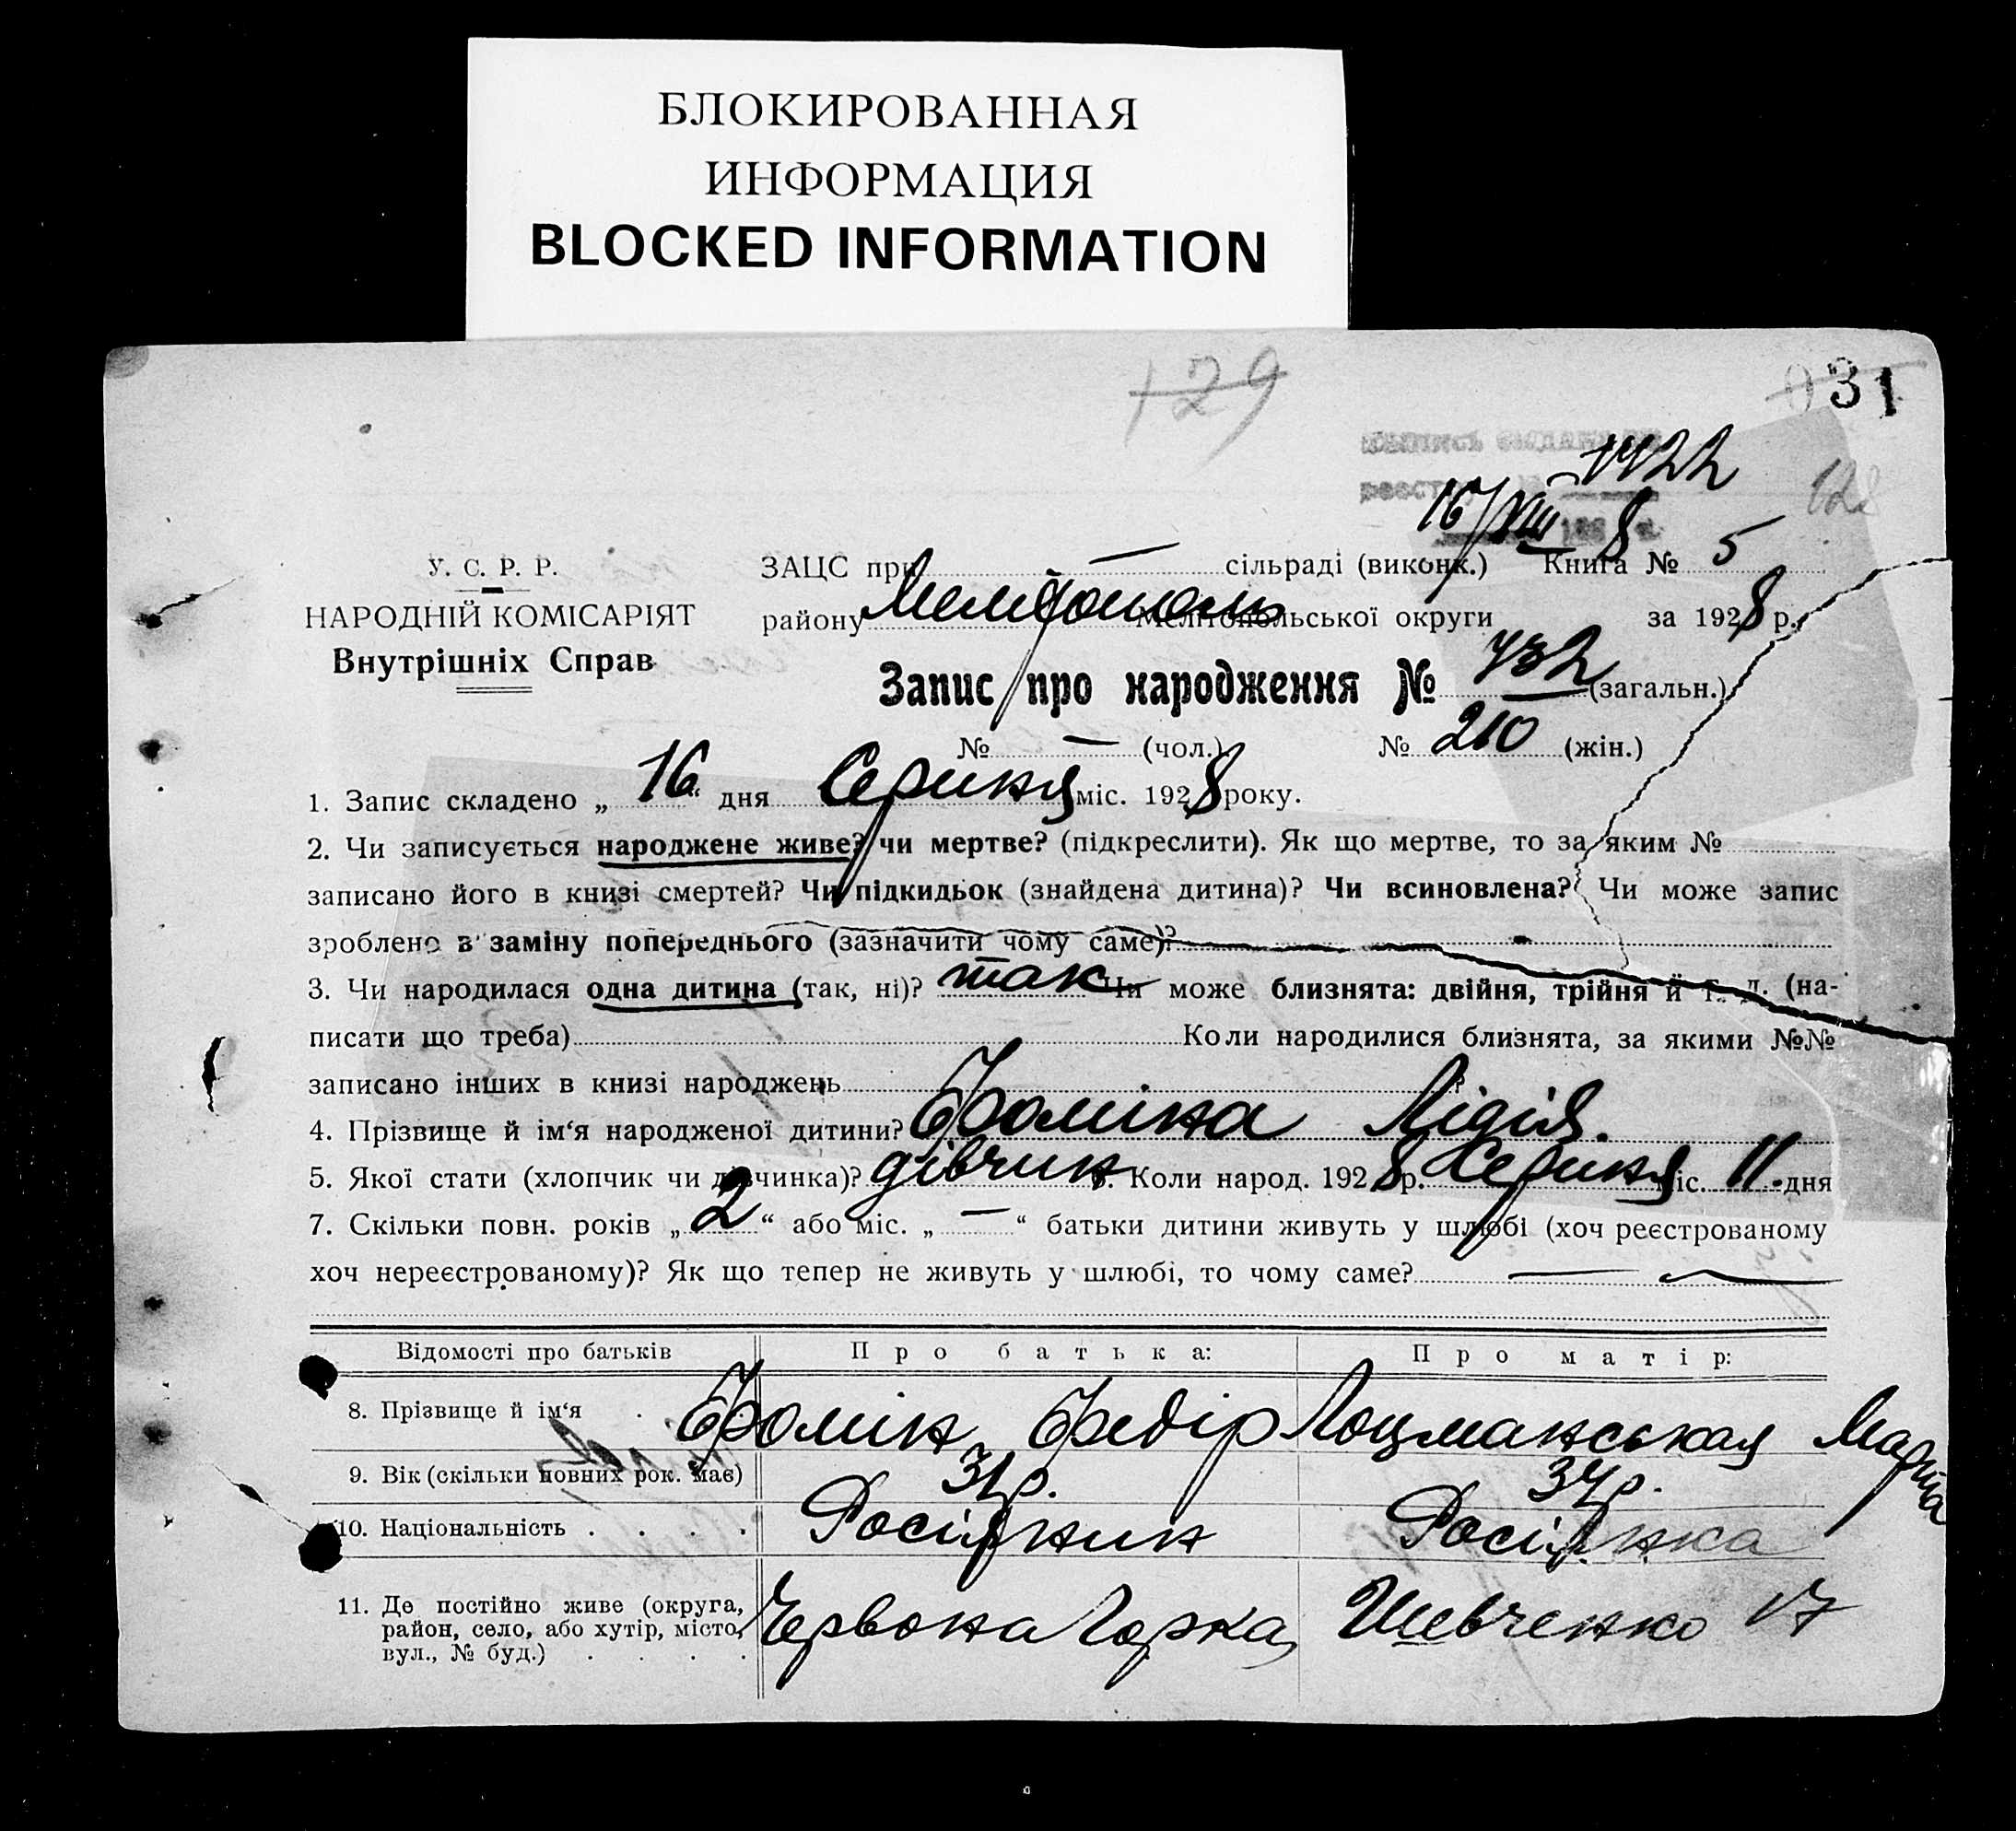 БЛОКИРОВАННАЯ
ИНФОРМАЦИЯ
BLOCKED INFORMATION
129
031
1422
128
16/VIII 8
У. С. Р. Р.
НАРОДНІЙ КОМІСАРІЯТ
Внутрішніх Справ
ЗАЦС при — сільраді (виконк.) Книга № 5
району Мелітополь Мелітопольської округи за 1928 р.
Запис про народження № 732 (загальн.)
№ — (чол.) № 210 (жін.)
1. Запис складено „16“ дня Серпня міс. 1928 року.
2. Чи записується народжене живе? чи мертве? (підкреслити). Як що мертве, то за яким №
записано його в книзі смертей? Чи підкидьок (знайдена дитина)? Чи всиновлена? Чи може запис
зроблено в заміну попереднього (зазначити чому саме)?
3. Чи народилася одна дитина (так, ні)? так Чи може близнята: двійня, трійня й т. д. (на-
писати що треба) Коли народилися близнята, за якими №№
записано інших в книзі народжень ?
4. Прізвище й ім‘я народженої дитини? Фоміна Лідія.
5. Якої стати (хлопчик чи дівчинка)? дівчин 6. Коли народ. 1928 р. Серпня міс. 11 дня
7. Скільки повн. років „2“ або міс. „—“ батьки дитини живуть у шлюбі (хоч реєстрованому
хоч нереєстрованому)? Як що тепер не живуть у шлюбі, то чому саме? —
Відомості про батьків Про батька: Про матір:
8. Прізвище й ім‘я . . Фомін Федір Лоцманськая Марта
9. Вік (скільки повних рок. має) р. р.
10. Національність . . . . Росіянин Росіянка
11. Де постійно живе (округа,
район, село, або хутір, місто,
вул., № буд.) . . . . Червона Горка, Шевченко 17